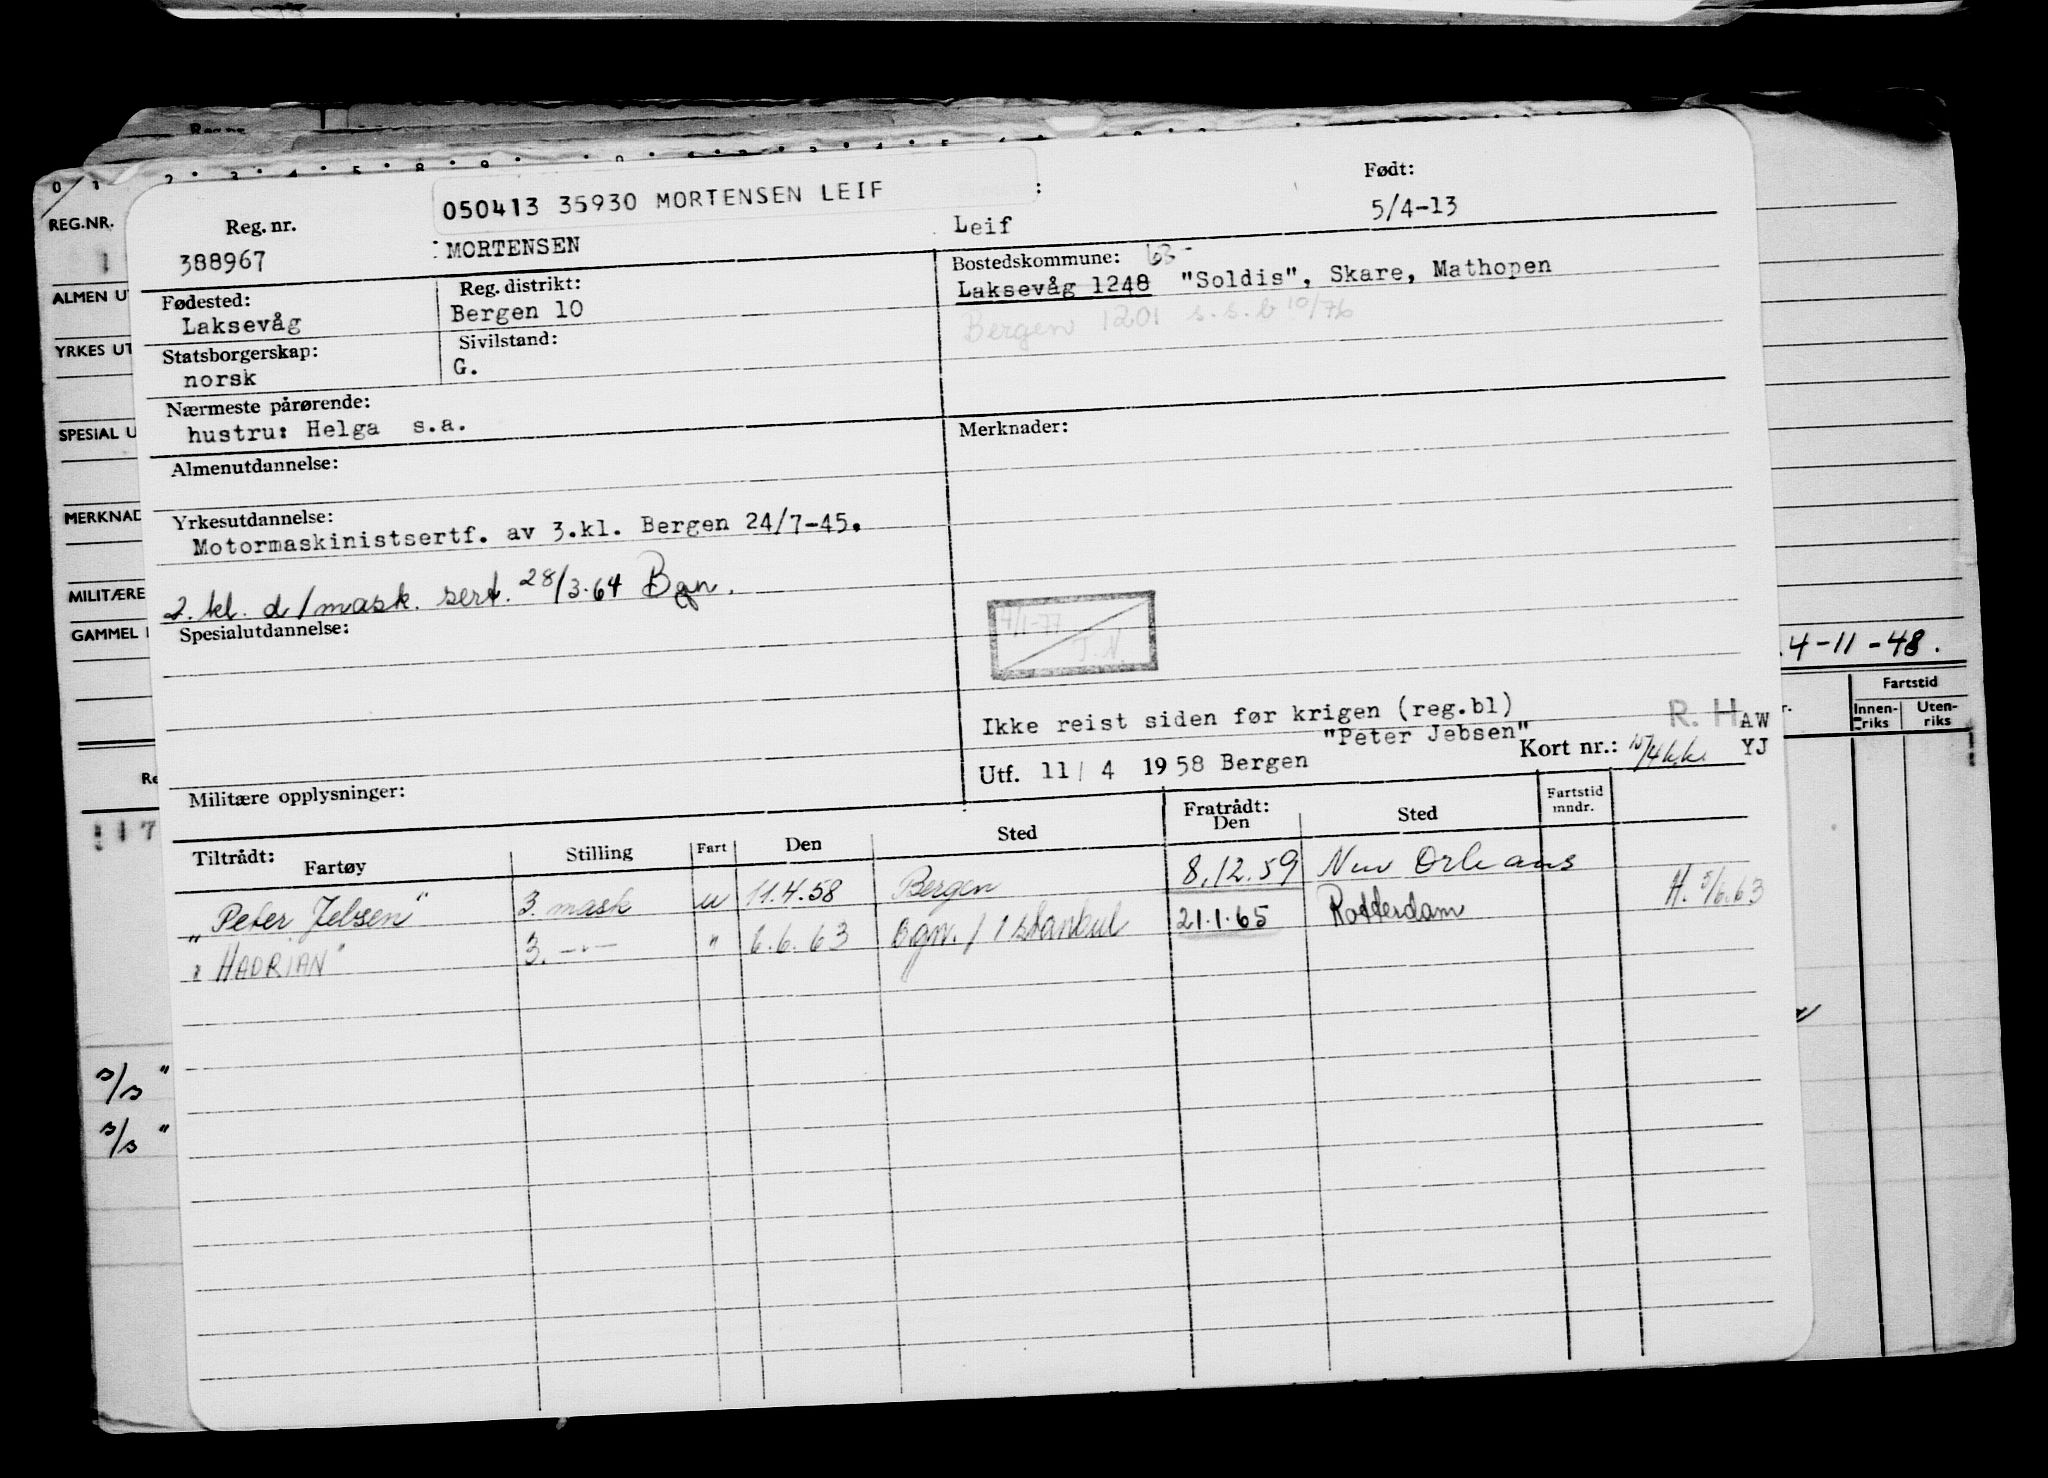 050413 35930 MORTENSEN LEIF
Født:
Reg. nr.
388967
MORTENSEN
Leif
5/4-13
Fødested:
Laksevåg
Reg. distrikt:
Bergen 10
Bostedskommune: 63-
Laksevåg 1248 "Soldis", Skare, Mathopen
Bergen 1201 s.s.b 10/76
Statsborgerskap:
norsk
Sivilstand:
G.
Nærmeste pårørende:
hustru: Helga s.a.
Merknader:
Almenutdannelse:
Yrkesutdannelse:
Motormaskinistsertf. av 3.kl. Bergen 24/7-45.
2. kl. d/mask. sert. 28/3.64 Bgn.
Spesialutdannelse:
T.N.
Ikke reist siden før krigen (reg.bl)
"Peter Jebsen"
R. H AW
Utf. 11/ 4 1958 Bergen
Kort nr.:
YJ
Militære opplysninger:
Tiltrådt:
Fartøy
Stilling
Fart
Den
Sted
Fratrådt:
Den
Sted
Fartstid
mndr.
"Peter Jebsen" 3. mask u 11.4.58 Bergen 8.12.59 New Orleans
"HADRIAN" 3. -"- " 6.6.63 Bgn./Istanbul 21.1.65 Rotterdam H. 5/6.63
REG.NR.
ALMEN UT
YRKES UT
SPESIAL U
MERKNAD
MILITÆRE
GAMMEL
Re
117
s/s "
s/s "
4-11-48.
Fartstid
Innen-
riks
Uten-
riks